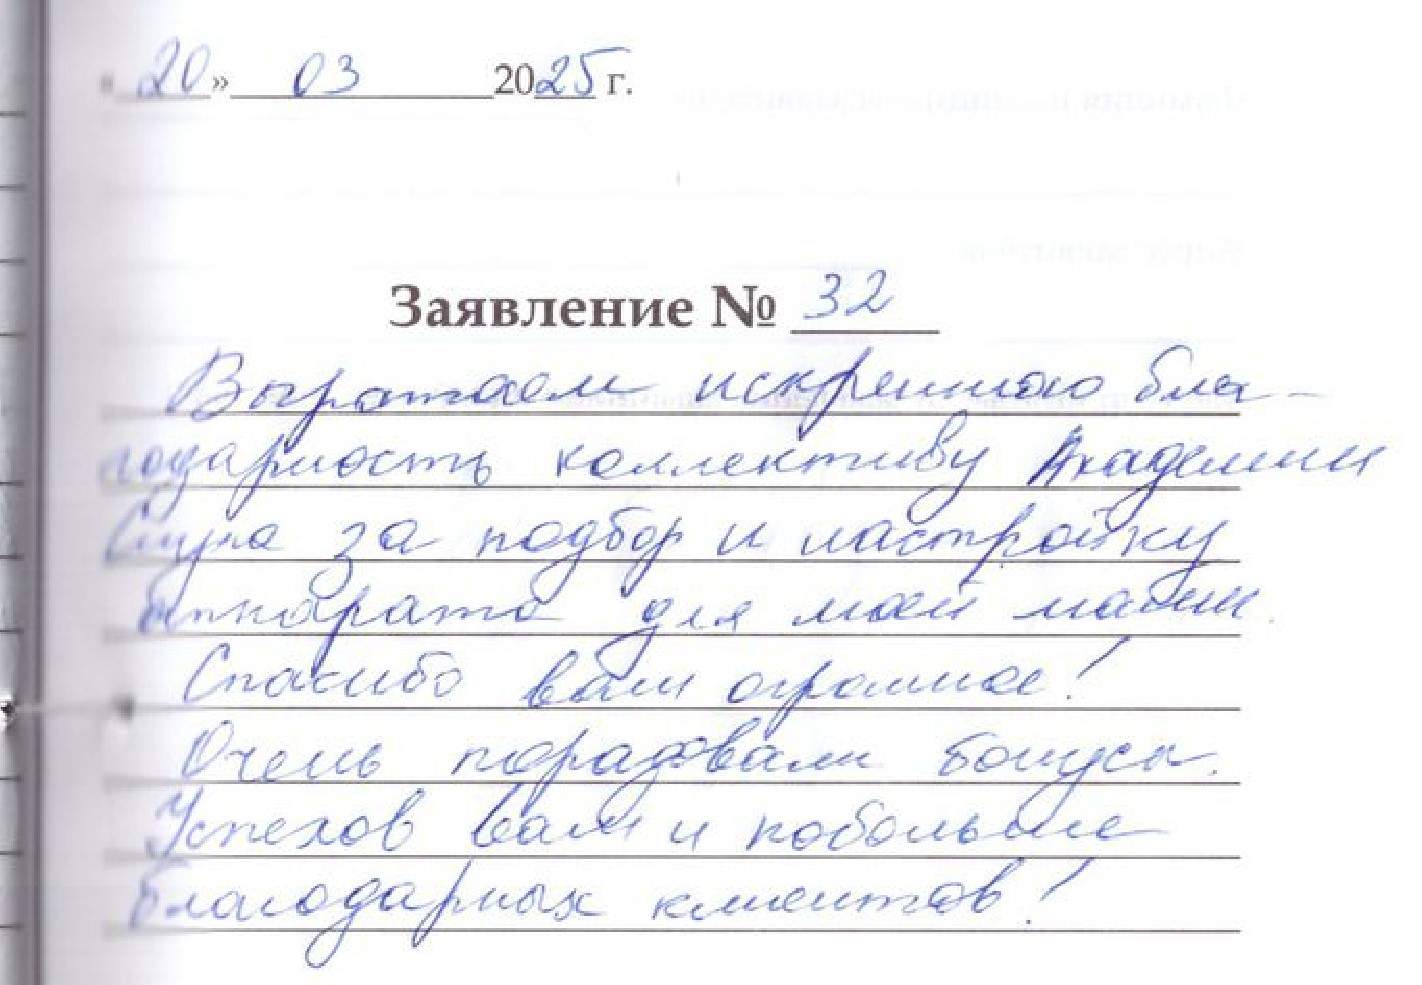 «20» 03 2025 г.
Заявление № 32
Выражаем искреннюю бла-
годарность коллективу Академии
Слуха за подбор и настройку
аппарата для моей мамы.
Спасибо вам огромное!
Очень порадовали бонусы.
Успехов вам и побольше
благодарных клиентов!